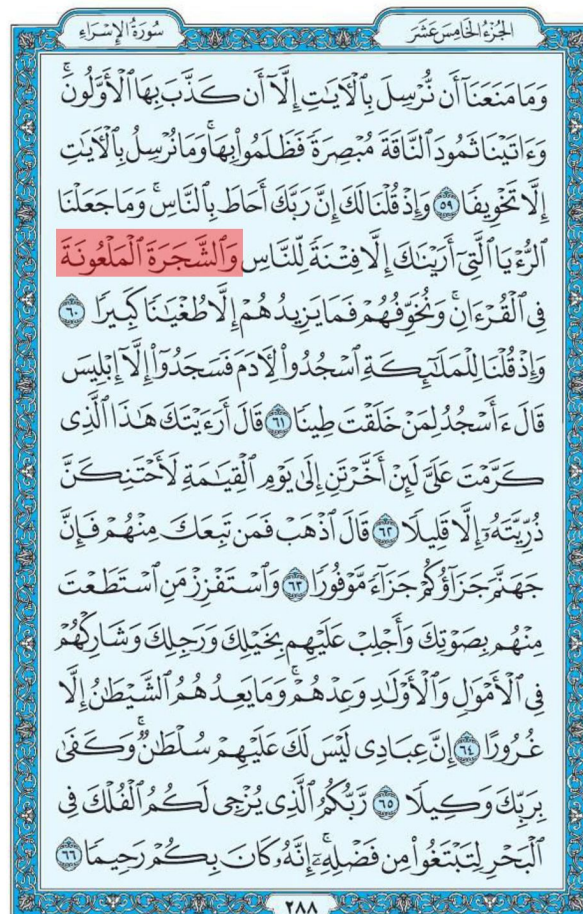 الجُزْءُ الخَامِسَ عَشَرَ
سُورَةُ الإِسْرَاءِ
وَمَا مَنَعَنَآ أَن نُّرْسِلَ بِٱلْأٓيَٰتِ إِلَّآ أَن كَذَّبَ بِهَا ٱلْأَوَّلُونَۚ
وَءَاتَيْنَا ثَمُودَ ٱلنَّاقَةَ مُبْصِرَةً فَظَلَمُوا۟ بِهَاۚ وَمَا نُرْسِلُ بِٱلْأٓيَٰتِ
إِلَّا تَخْوِيفًا ٥٩ وَإِذْ قُلْنَا لَكَ إِنَّ رَبَّكَ أَحَاطَ بِٱلنَّاسِۚ وَمَا جَعَلْنَا
ٱلرُّءْيَا ٱلَّتِىٓ أَرَيْنَٰكَ إِلَّا فِتْنَةً لِّلنَّاسِ وَٱلشَّجَرَةَ ٱلْمَلْعُونَةَ
فِى ٱلْقُرْءَانِۚ وَنُخَوِّفُهُمْ فَمَا يَزِيدُهُمْ إِلَّا طُغْيَٰنًا كَبِيرًا ٦٠
وَإِذْ قُلْنَا لِلْمَلَٰٓئِكَةِ ٱسْجُدُوا۟ لِأَدَمَ فَسَجَدُوٓا۟ إِلَّآ إِبْلِيسَ
قَالَ ءَأَسْجُدُ لِمَنْ خَلَقْتَ طِينًا ٦١ قَالَ أَرَءَيْتَكَ هَٰذَا ٱلَّذِى
كَرَّمْتَ عَلَىَّ لَئِنْ أَخَّرْتَنِ إِلَىٰ يَوْمِ ٱلْقِيَٰمَةِ لَأَحْتَنِكَنَّ
ذُرِّيَّتَهُۥٓ إِلَّا قَلِيلًا ٦٢ قَالَ ٱذْهَبْ فَمَن تَبِعَكَ مِنْهُمْ فَإِنَّ
جَهَنَّمَ جَزَآؤُكُمْ جَزَآءً مَّوْفُورًا ٦٣ وَٱسْتَفْزِزْ مَنِ ٱسْتَطَعْتَ
مِنْهُم بِصَوْتِكَ وَأَجْلِبْ عَلَيْهِم بِخَيْلِكَ وَرَجِلِكَ وَشَارِكْهُمْ
فِى ٱلْأَمْوَٰلِ وَٱلْأَوْلَٰدِ وَعِدْهُمْۚ وَمَا يَعِدُهُمُ ٱلشَّيْطَٰنُ إِلَّا
غُرُورًا ٦٤ إِنَّ عِبَادِى لَيْسَ لَكَ عَلَيْهِمْ سُلْطَٰنٌۚ وَكَفَىٰ
بِرَبِّكَ وَكِيلًا ٦٥ رَّبُّكُمُ ٱلَّذِى يُزْجِى لَكُمُ ٱلْفُلْكَ فِى
ٱلْبَحْرِ لِتَبْتَغُوا۟ مِن فَضْلِهِۦٓۚ إِنَّهُۥ كَانَ بِكُمْ رَحِيمًا ٦٦
٢٨٨